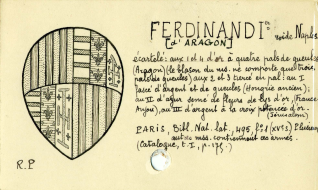 FERDINAND Ier roi de Naples
[d'ARAGON]
écartelé: aux 1 et 4 d'or à quatre pals de gueules
(Aragon) (le blason du ms. ne comporte que trois
pals de gueules) aux 2 et 3 tiercé en pal: au I
fascé d'argent et de gueules (Hongrie ancien);
au II d'azur semé de fleurs de lys d'or (France
Anjou), au III d'argent à la croix potencée d'or.
(Jérusalem)
PARIS, Bibl. Nat. lat., 495, fo 1 (XVe s)
autres mss. contiennent ces armes.
(Catalogue, t. I, p. 175.)
R.P